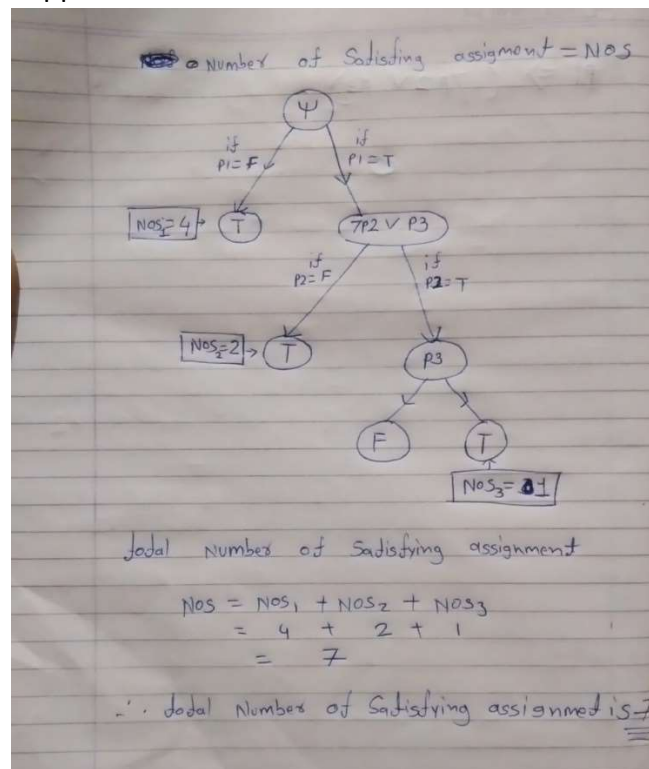 Number of Satisfing assigment = NOS
Ψ
if
P1 = F
if
P1 = T
NOS₁=4
T
¬P2 ∨ P3
if
P2 = F
if
P2 = T
NOS₂=2
T
P3
F
T
NOS₃= 1
total Number of Satisfying assignment
NOS = NOS₁ + NOS₂ + NOS₃
= 4 + 2 + 1
= 7
∴ total Number of Satisfying assignmed is 7